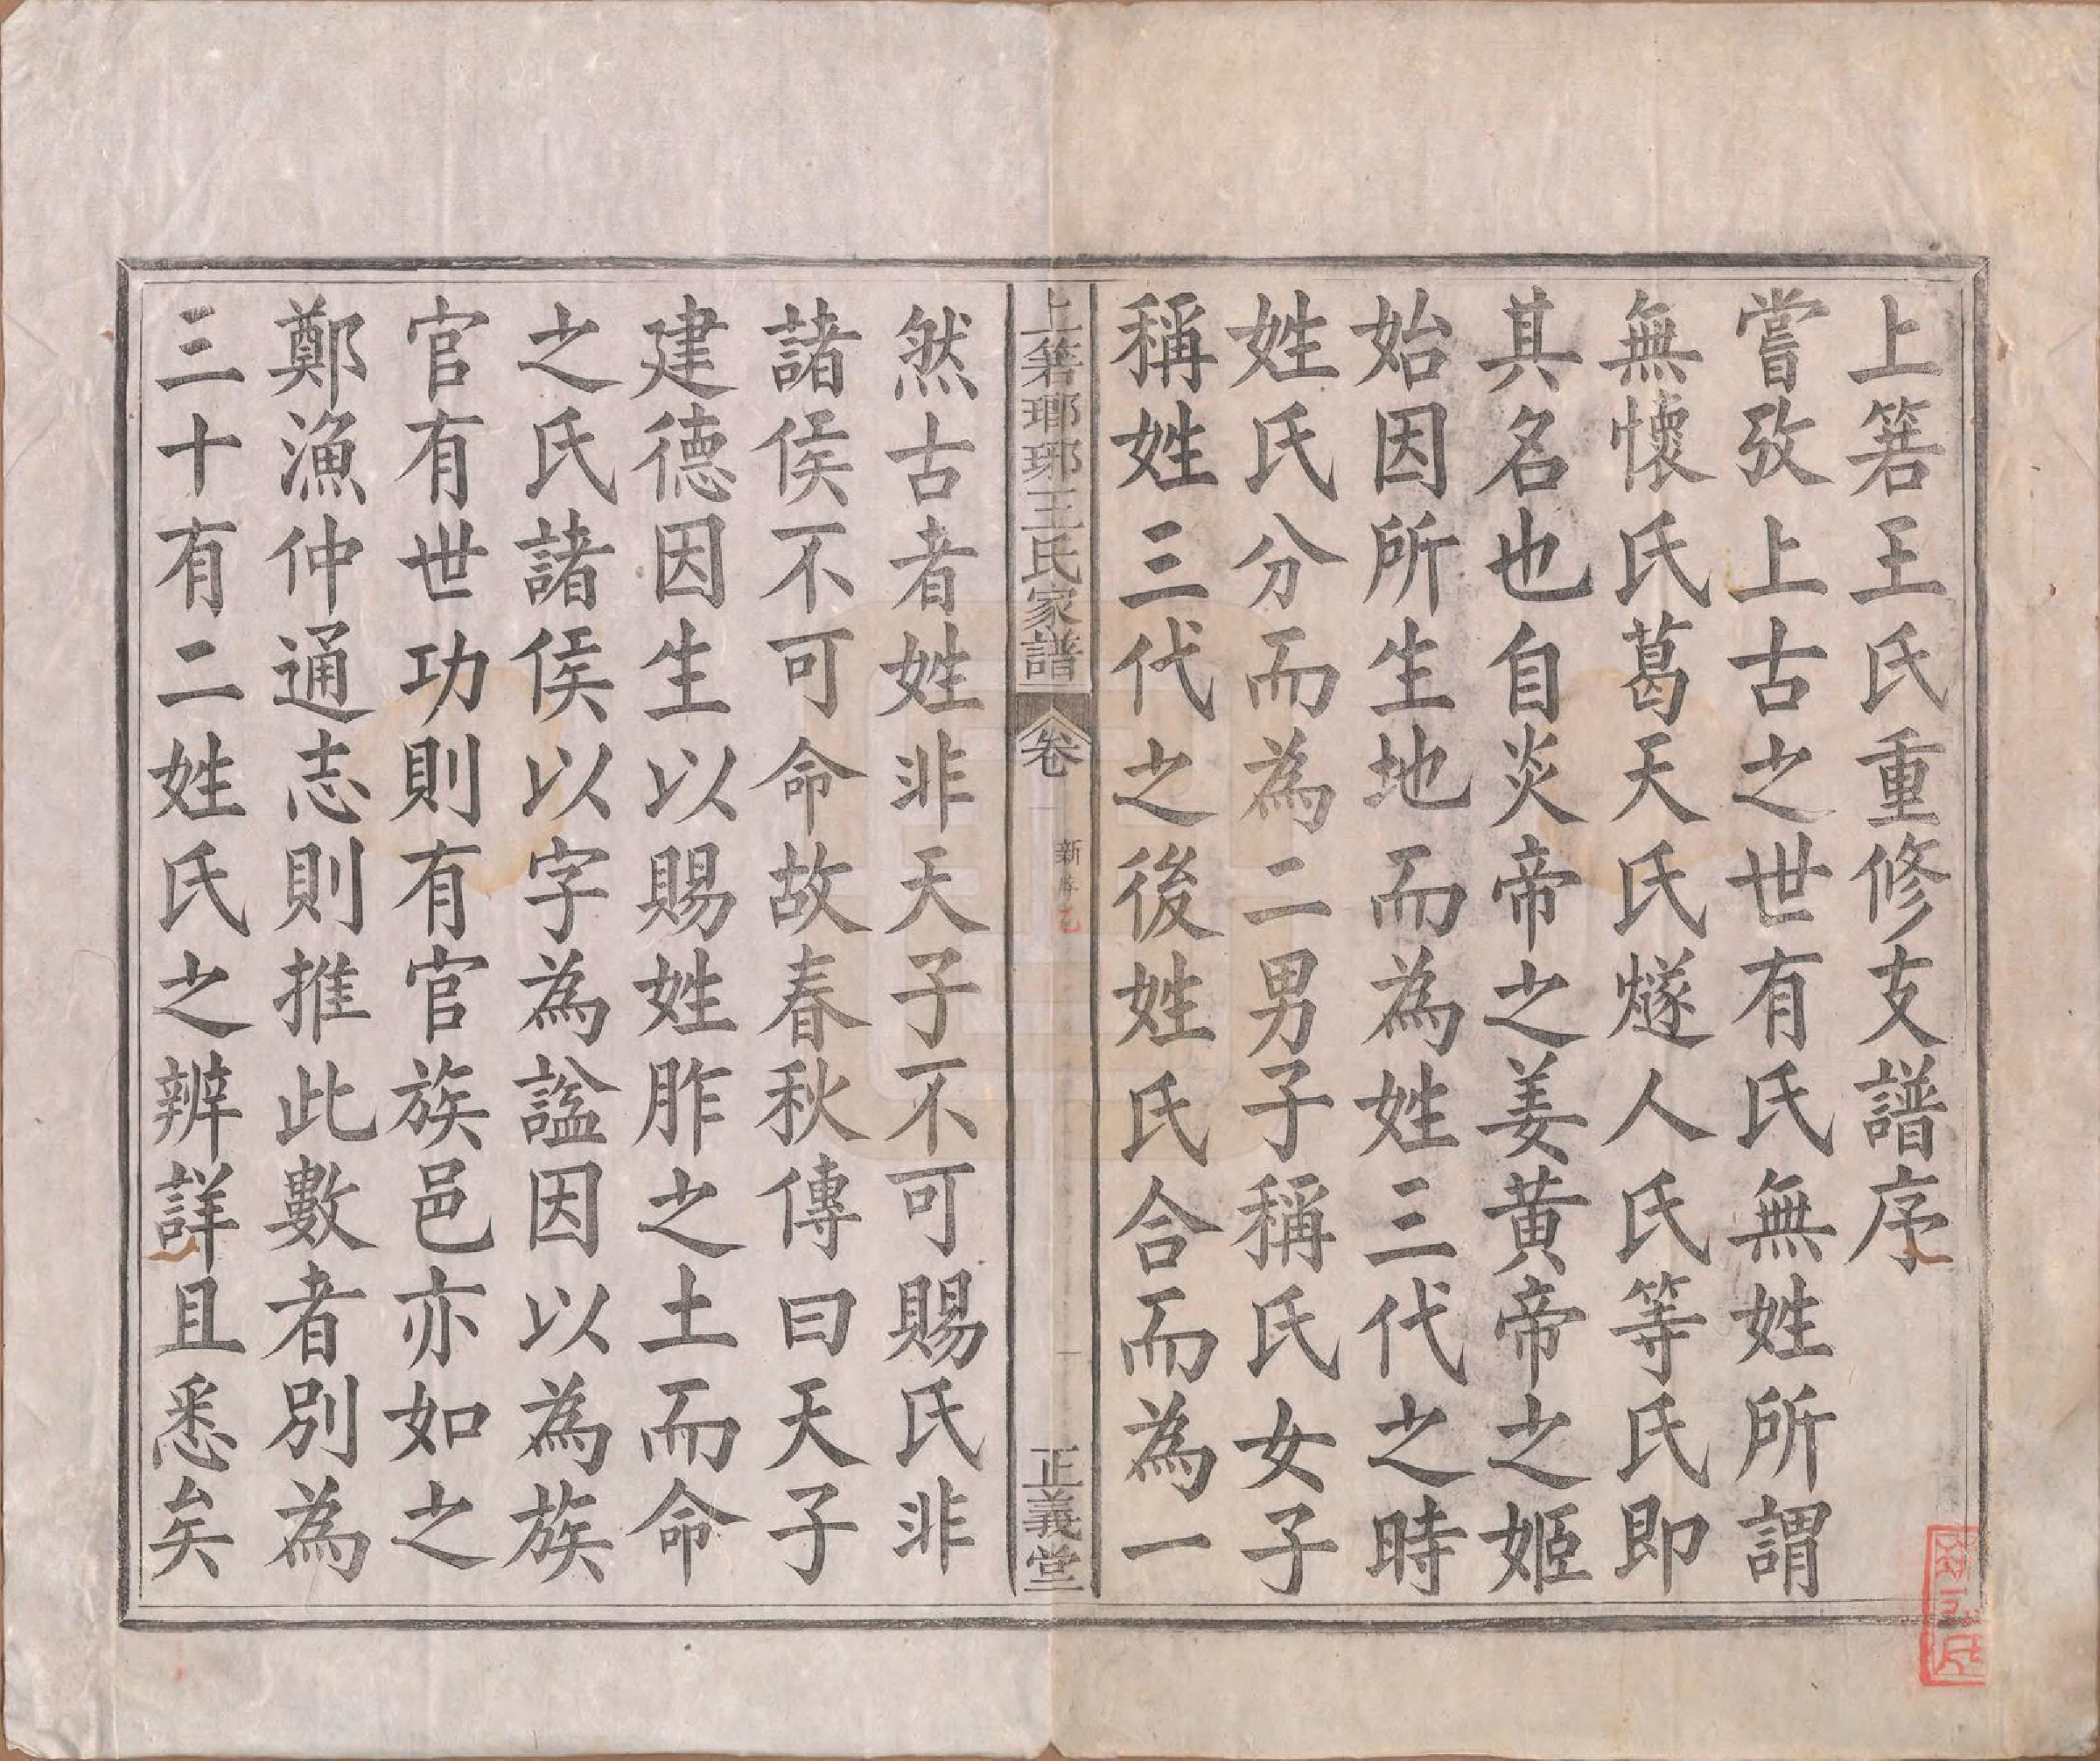 上箬王氏重修支譜序
嘗攷上古之世有氏無姓所謂
無懷氏葛天氏燧人氏等氏即
其名也自炎帝之姜黃帝之姬
始因所生地而為姓三代之時
姓氏分而為二男子稱氏女子
稱姓三代之後姓氏合而為一
上箬瑯琊王氏家譜
卷一
新序
乙
一
正義堂
然古者姓非天子不可賜氏非
諸侯不可命故春秋傳曰天子
建德因生以賜姓胙之土而命
之氏諸侯以字為諡因以為族
官有世功則有官族邑亦如之
鄭漁仲通志則推此數者別為
三十有二姓氏之辨詳且悉矣